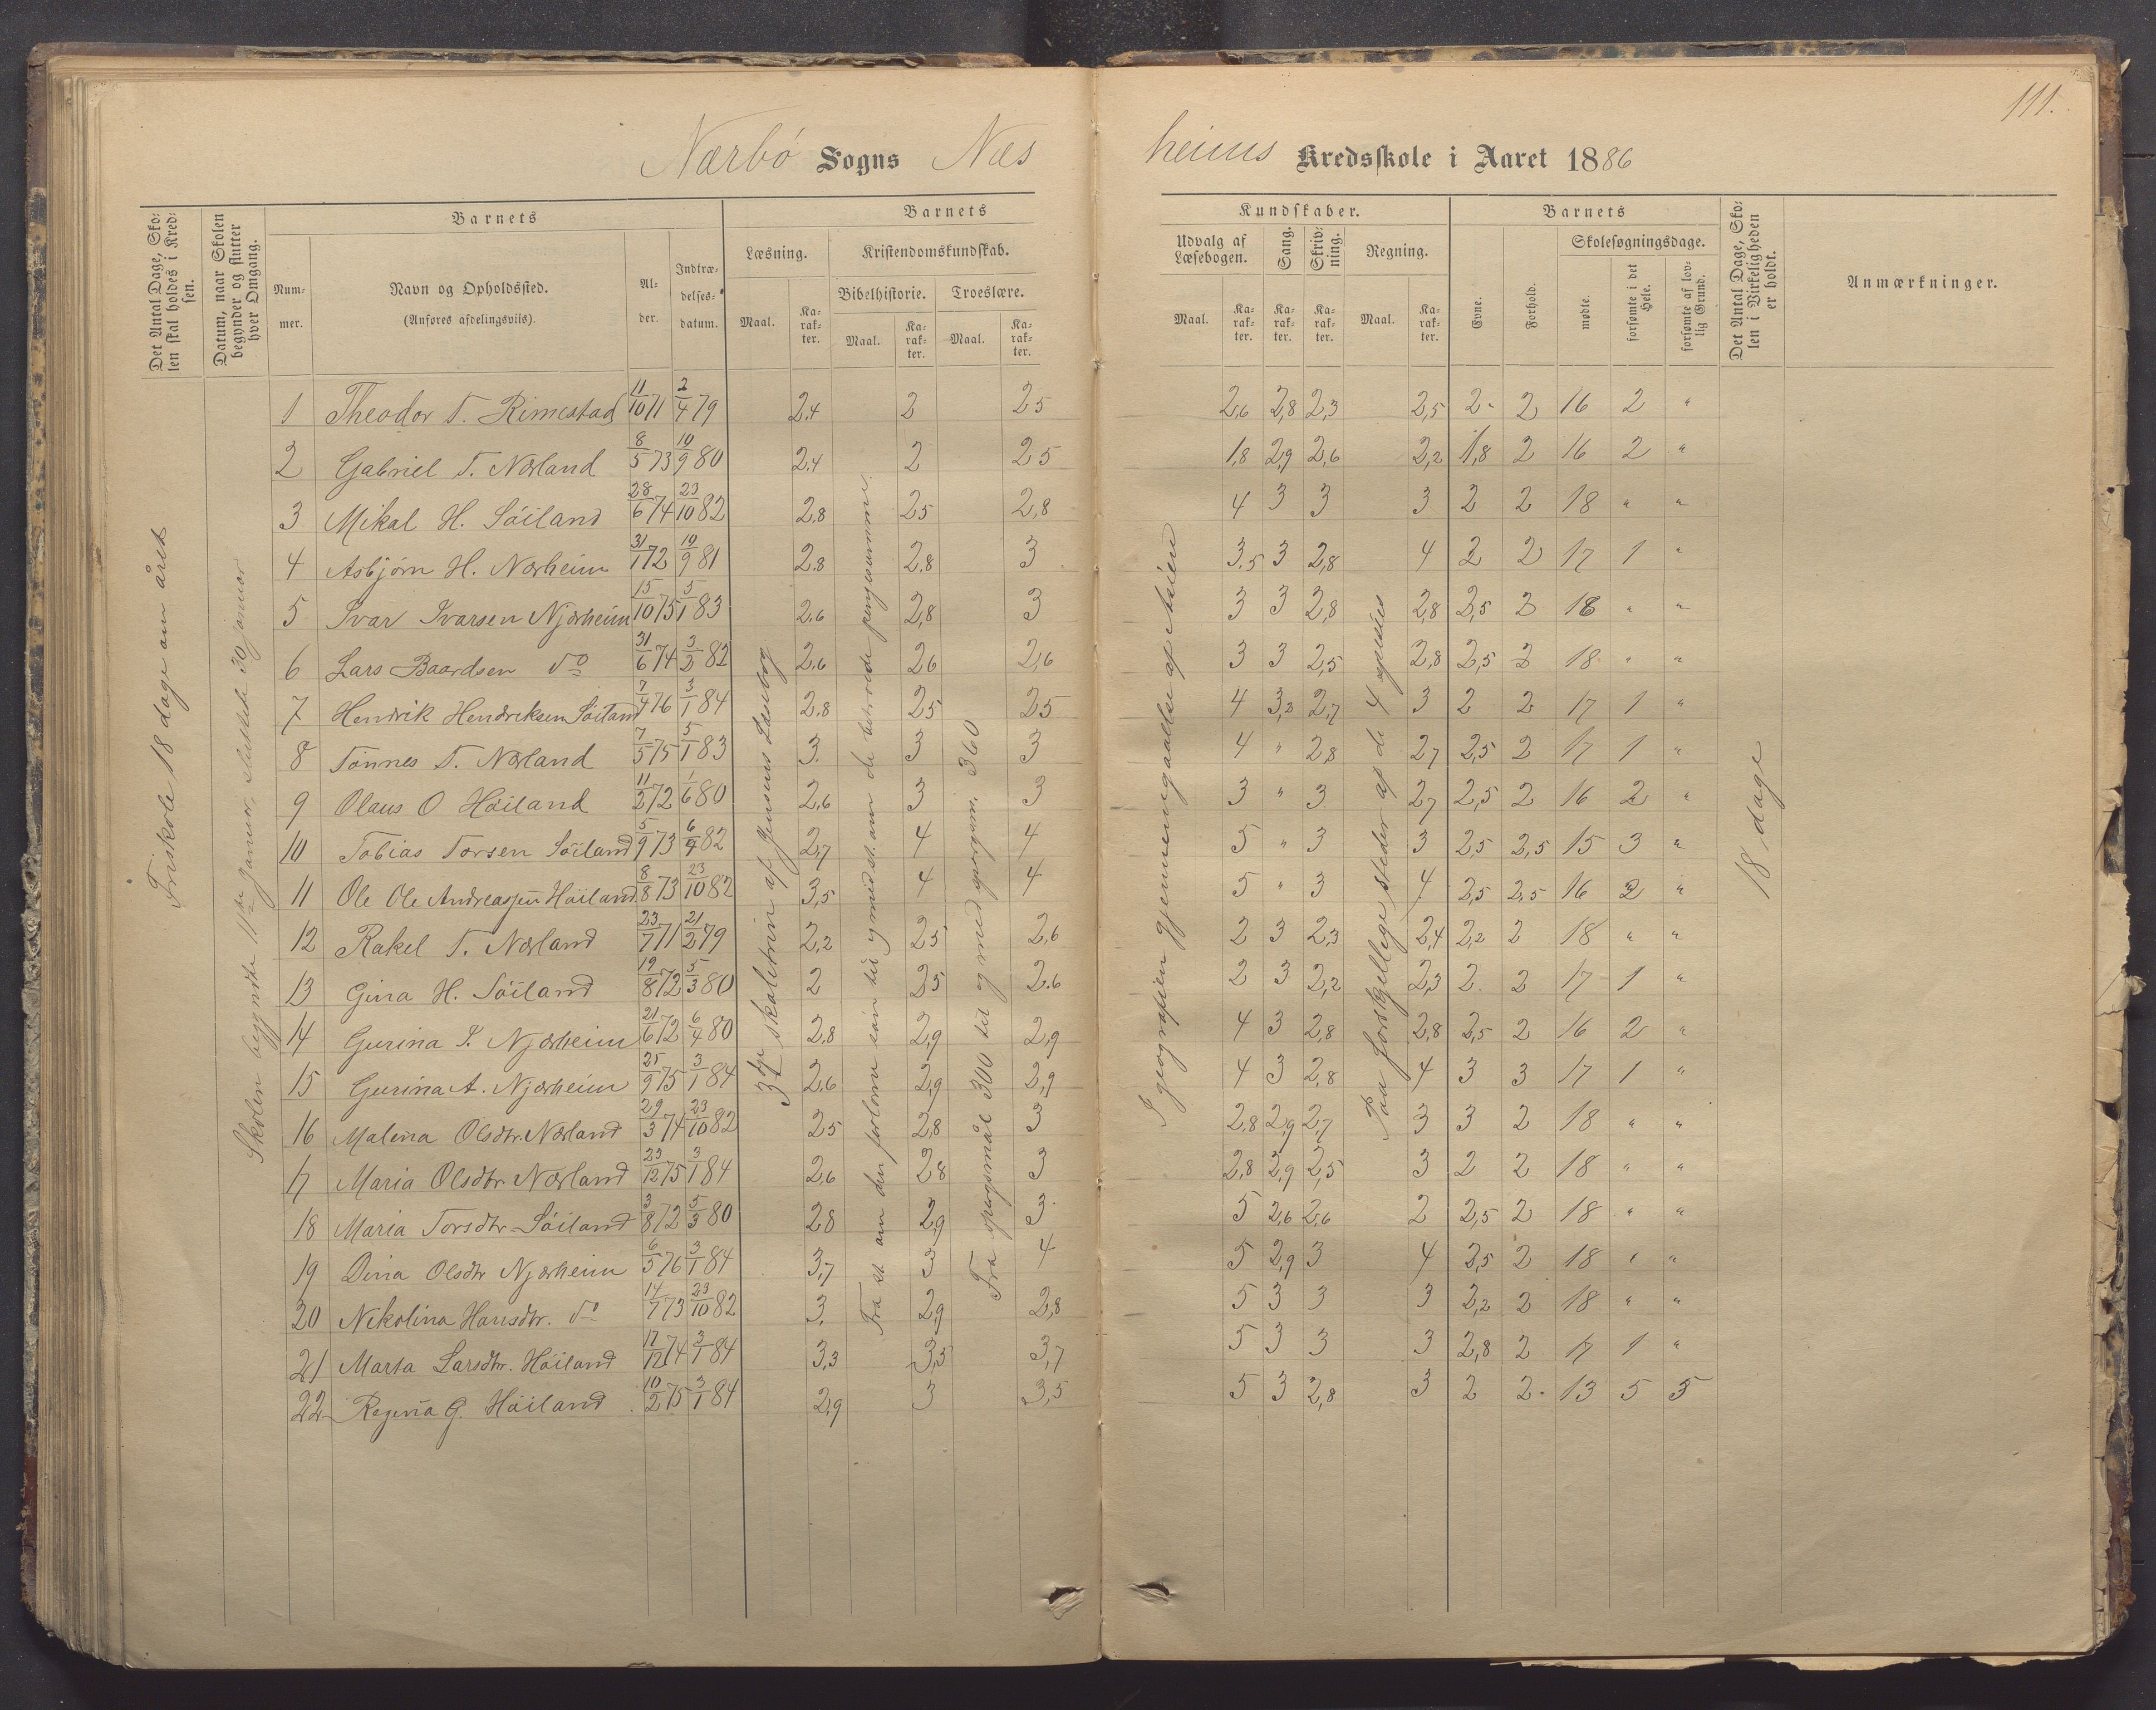 111.
Nærbö Sogns Næs
heims Kredsskole i Aaret 1886
Det Antal Dage, Sko-
len skal holdes i Kred-
sen.
Datum, naar Skolen
begynder og slutter
hver Omgang.
Barnets
Num-
mer.
Navn og Opholdssted.
(Anføres afdelingsvis).
Al-
der.
Indtræ-
delses-
datum.
Barnets
Læsning.
Maal.
Ka-
rak-
ter.
Kristendomskundskab.
Bibelhistorie.
Troeslære.
Maal.
Ka-
rak-
ter.
Maal.
Ka-
rak-
ter.
Kundskaber.
Udvalg af
Læsebogen.
Sang.
Skriv-
ning.
Regning.
Maal.
Ka-
rak-
ter.
Ka-
rak-
ter.
Ka-
rak-
ter.
Maal.
Ka-
rak-
ter.
Barnets
Evne.
Forhold.
Skolesøgningsdage.
mødte.
forsømte i det
Hele.
forsømte af lov-
lig Grund.
Det Antal Dage, Sko-
len i Virkeligheden
er holdt.
Anmærkninger.
Friskole 18 dage om året
Skolen begyndte 11te januar, sluttede 30 januar
3die skoletrin af Jensens Læsebog
Fra st. om den forlorne sön til og med st. om de betroede pengesumme.
Fra spørgsmål 300 til og med spørgsm. 360
I geografien gjennemgaaelse af Asien
Paa forskjellige steder af de 4 species
18 dage
1 Theodor T. Rimestad 11/10 71 2/4 79 2,4 2 2,5 2,6 2,8 2,3 2,5 2 2 16 2 "
2 Gabriel T. Nærland 8/5 73 10/9 80 2,4 2 2,5 1,8 2,9 2,6 2,2 1,8 2 16 2 "
3 Mikal H. Söiland 28/6 74 23/10 82 2,8 2,5 2,8 4 3 3 3 2 2 18 " "
4 Asbjørn H. Nærheim 31/1 72 10/9 81 2,8 2,8 3 3,5 3 2,8 4 2 2 17 1 "
5 Ivar Ivarsen Njærheim 15/10 75 5/1 83 2,6 2,8 3 3 3 2,8 2,8 2,5 2 18 " "
6 Lars Baardsen do 31/6 74 3/2 82 2,6 2,6 2,6 3 3 2,5 2,8 2,5 2 18 " "
7 Henrik Hendriksen Söiland 7/4 76 3/1 84 2,8 2,5 2,5 4 3,2 2,7 3 2 2 17 1 "
8 Tönnes T. Nærland 7/5 75 5/1 83 3 3 3 4 " 2,8 2,7 2,5 2 17 1 "
9 Olaus O Höiland 11/2 72 1/6 80 2,6 3 3 3 " 3 2,7 2,5 2 16 2 "
10 Tobias Torsen Söiland 5/9 73 6/9 82 2,7 4 4 5 " 3 3 2,5 2,5 15 3 "
11 Ole Ole Andreassen Höiland 8/8 73 23/10 82 3,5 4 4 5 " 3 4 2,5 2,5 16 2 "
12 Rakel T. Nærland 23/7 71 21/2 79 2,2 2,5 2,6 2 3 2,3 2,4 2,2 2 18 " "
13 Gina H. Söiland 19/8 72 5/3 80 2 2,5 2,6 2 3 2,2 2,3 2 2 17 1 "
14 Gurina P. Njærheim 21/6 72 6/4 80 2,8 2,9 2,9 4 3 2,8 2,8 2,5 2 16 2 "
15 Gurina A. Njærheim 25/9 75 3/1 84 2,6 2,9 2,9 4 3 2,8 4 3 3 17 1 "
16 Malena Olsdtr. Nærland 29/3 74 23/10 82 2,5 2,8 3 2,8 2,9 2,7 3 3 2 18 " "
17 Maria Olsdtr Nærland 23/12 75 3/1 84 2,6 2,8 3 2,8 2,9 2,5 3 2 2 18 " "
18 Maria Torsdtr Söiland 3/8 72 5/3 80 2,8 2,9 3 5 2,6 2,6 2 2,5 2 18 " "
19 Dina Olsdtr Njærheim 6/5 76 3/1 84 3,7 3 4 5 2,9 3 4 2,5 2 18 " "
20 Nikolina Hansdtr. do 14/7 73 23/10 82 3 2,9 2,8 5 3 3 3 2,2 2 18 " "
21 Marta Larsdtr. Höiland 17/12 74 3/1 84 3,3 3,5 3,7 5 3 3 3 2,8 2 17 1 "
22 Regina G. Höiland 10/2 75 3/1 84 2,9 3 3,5 5 3 2,8 3 2 2 13 5 5